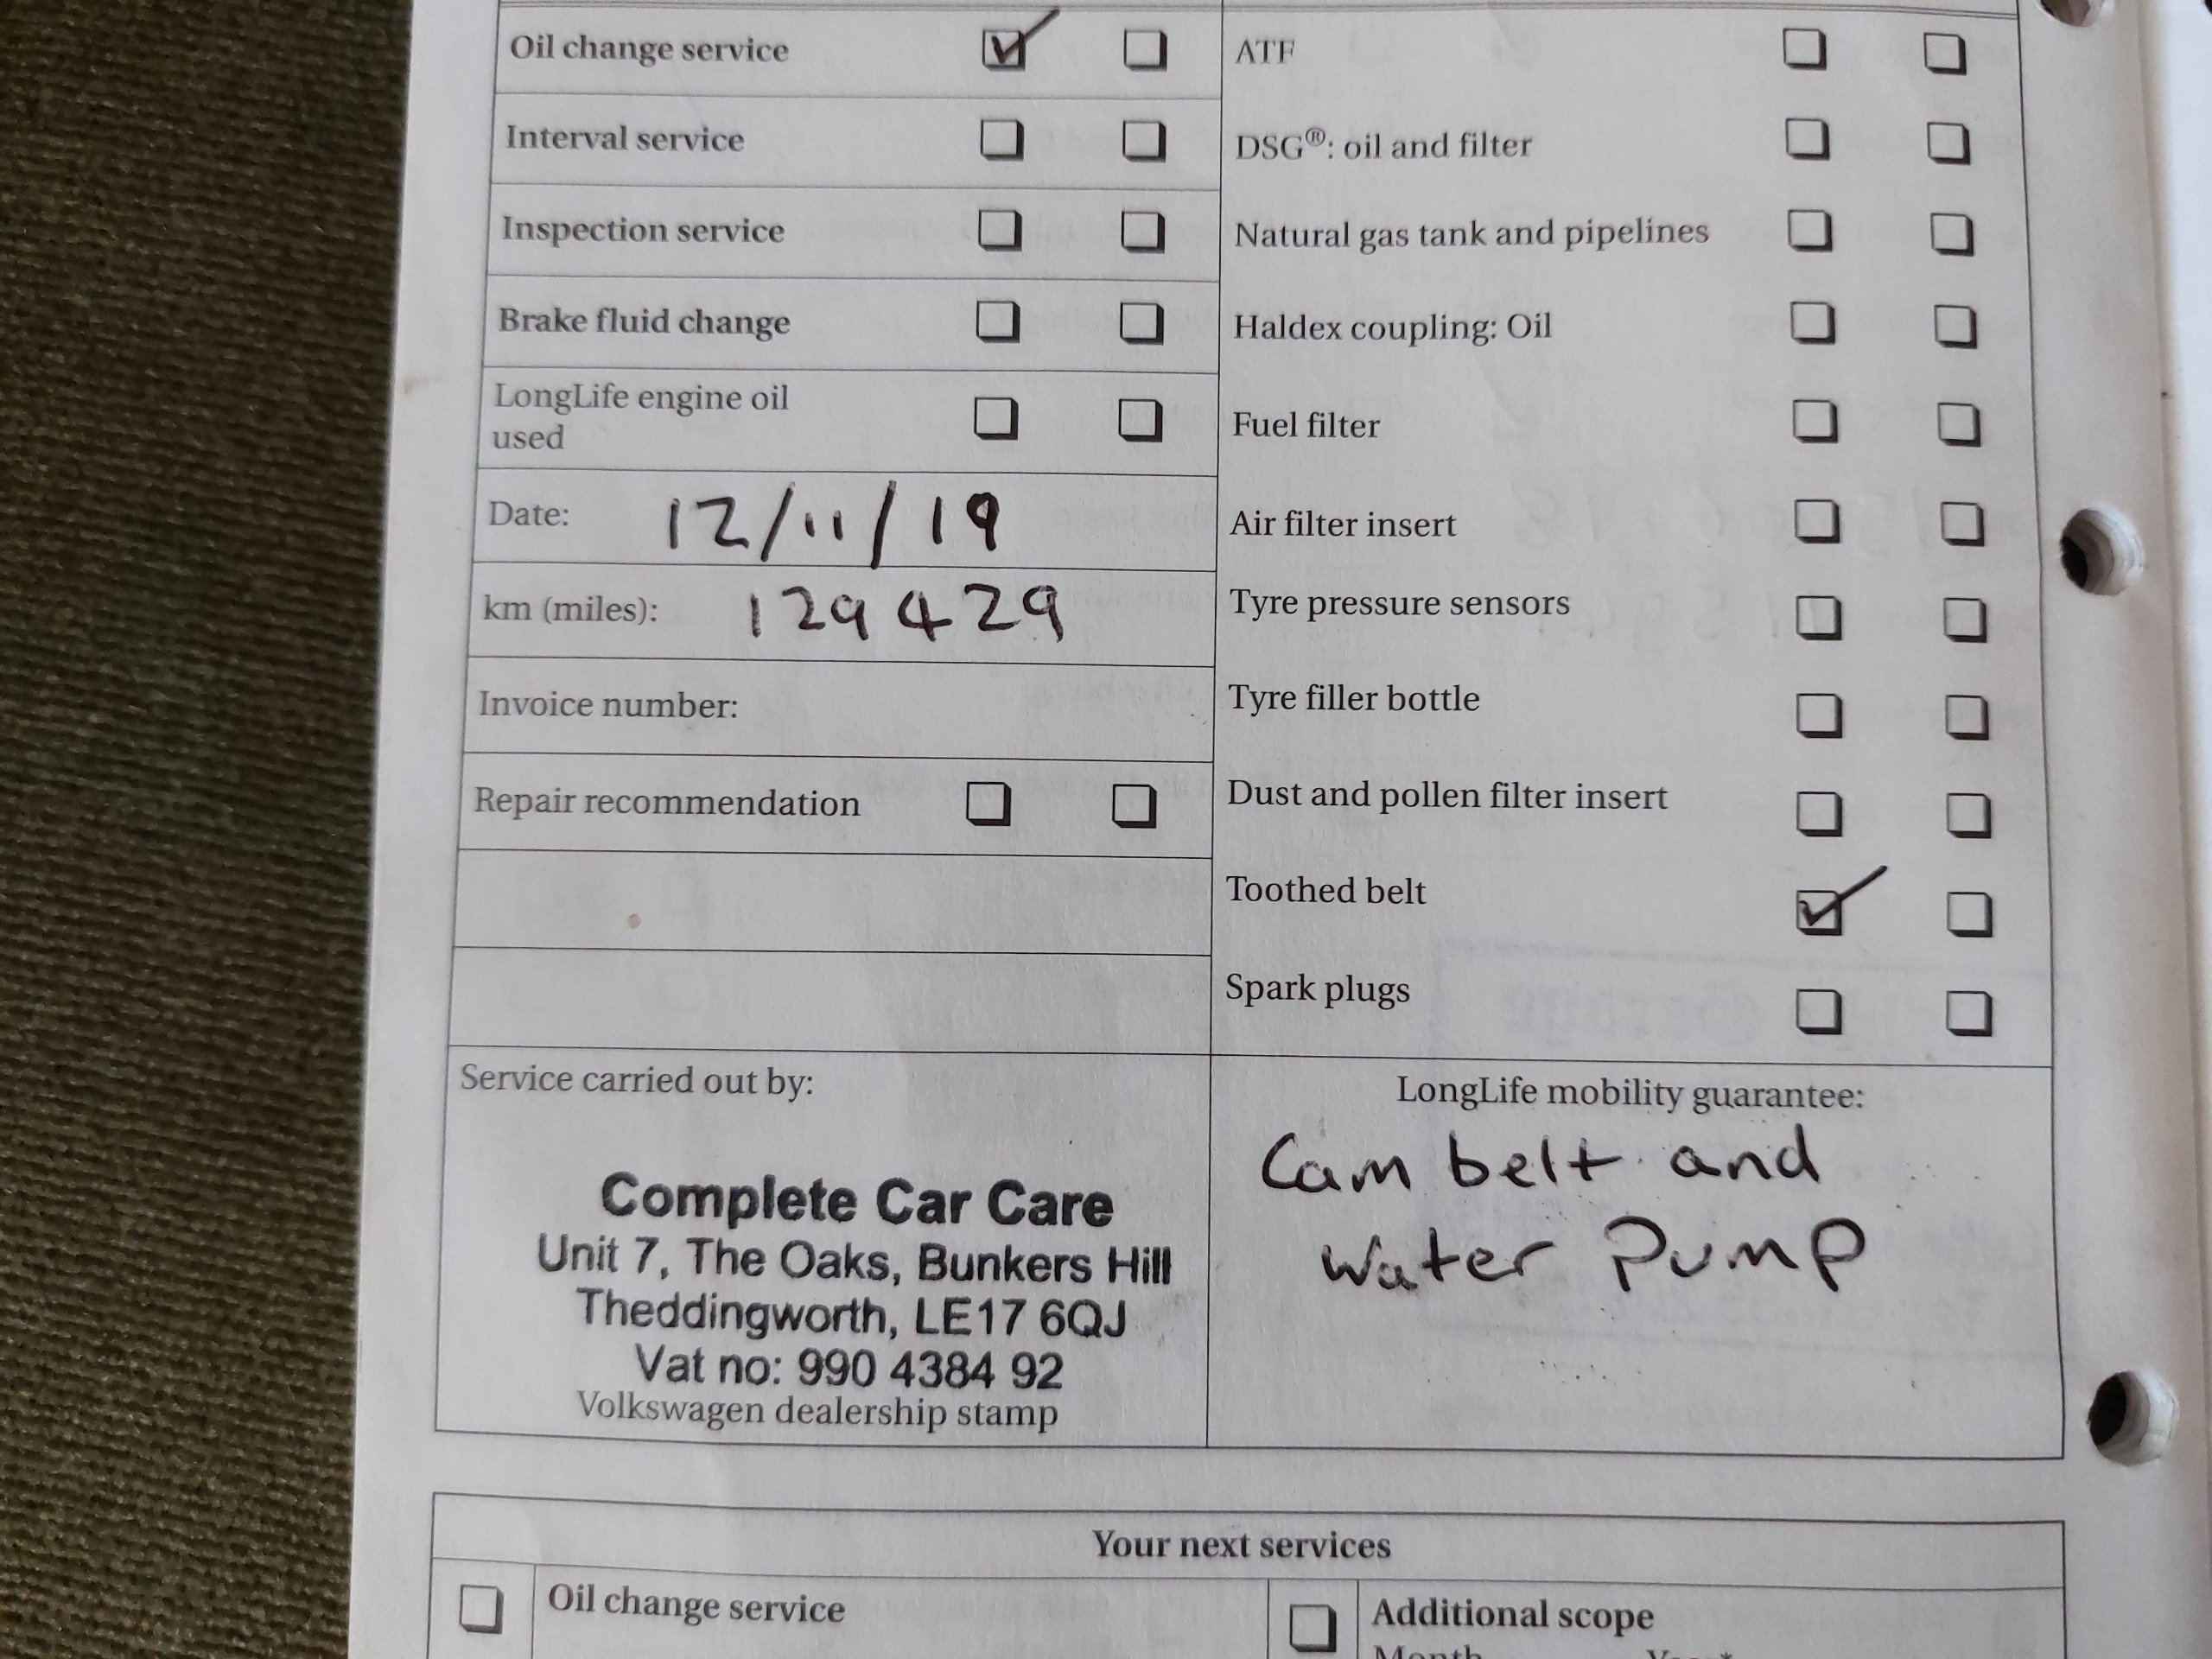 Oil change service
Interval service
Inspection service
Brake fluid change
LongLife engine oil
used
Date: 12/11/19
km (miles): 129429
Invoice number:
Repair recommendation
ATF
DSG®: oil and filter
Natural gas tank and pipelines
Haldex coupling: Oil
Fuel filter
Air filter insert
Tyre pressure sensors
Tyre filler bottle
Dust and pollen filter insert
Toothed belt
Spark plugs
Service carried out by:
Complete Car Care
Unit 7, The Oaks, Bunkers Hill
Theddingworth, LE17 6QJ
Vat no: 990 4384 92
Volkswagen dealership stamp
LongLife mobility guarantee:
Cam belt and
Water Pump
Your next services
Oil change service
Additional scope
Month Year*